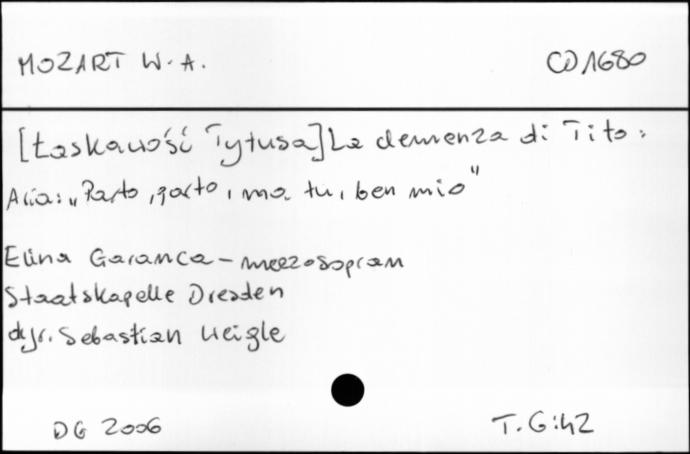 MOZART W. A. CD 1680
[Łaskawość Tytusa] La clemenza di Tito:
Aria: „Parto, parto, ma tu, ben mio"
Elina Garanca - mezzosopran
Staatskapelle Dresden
dyr. Sebastian Weigle
DG 2006 T. 6:42